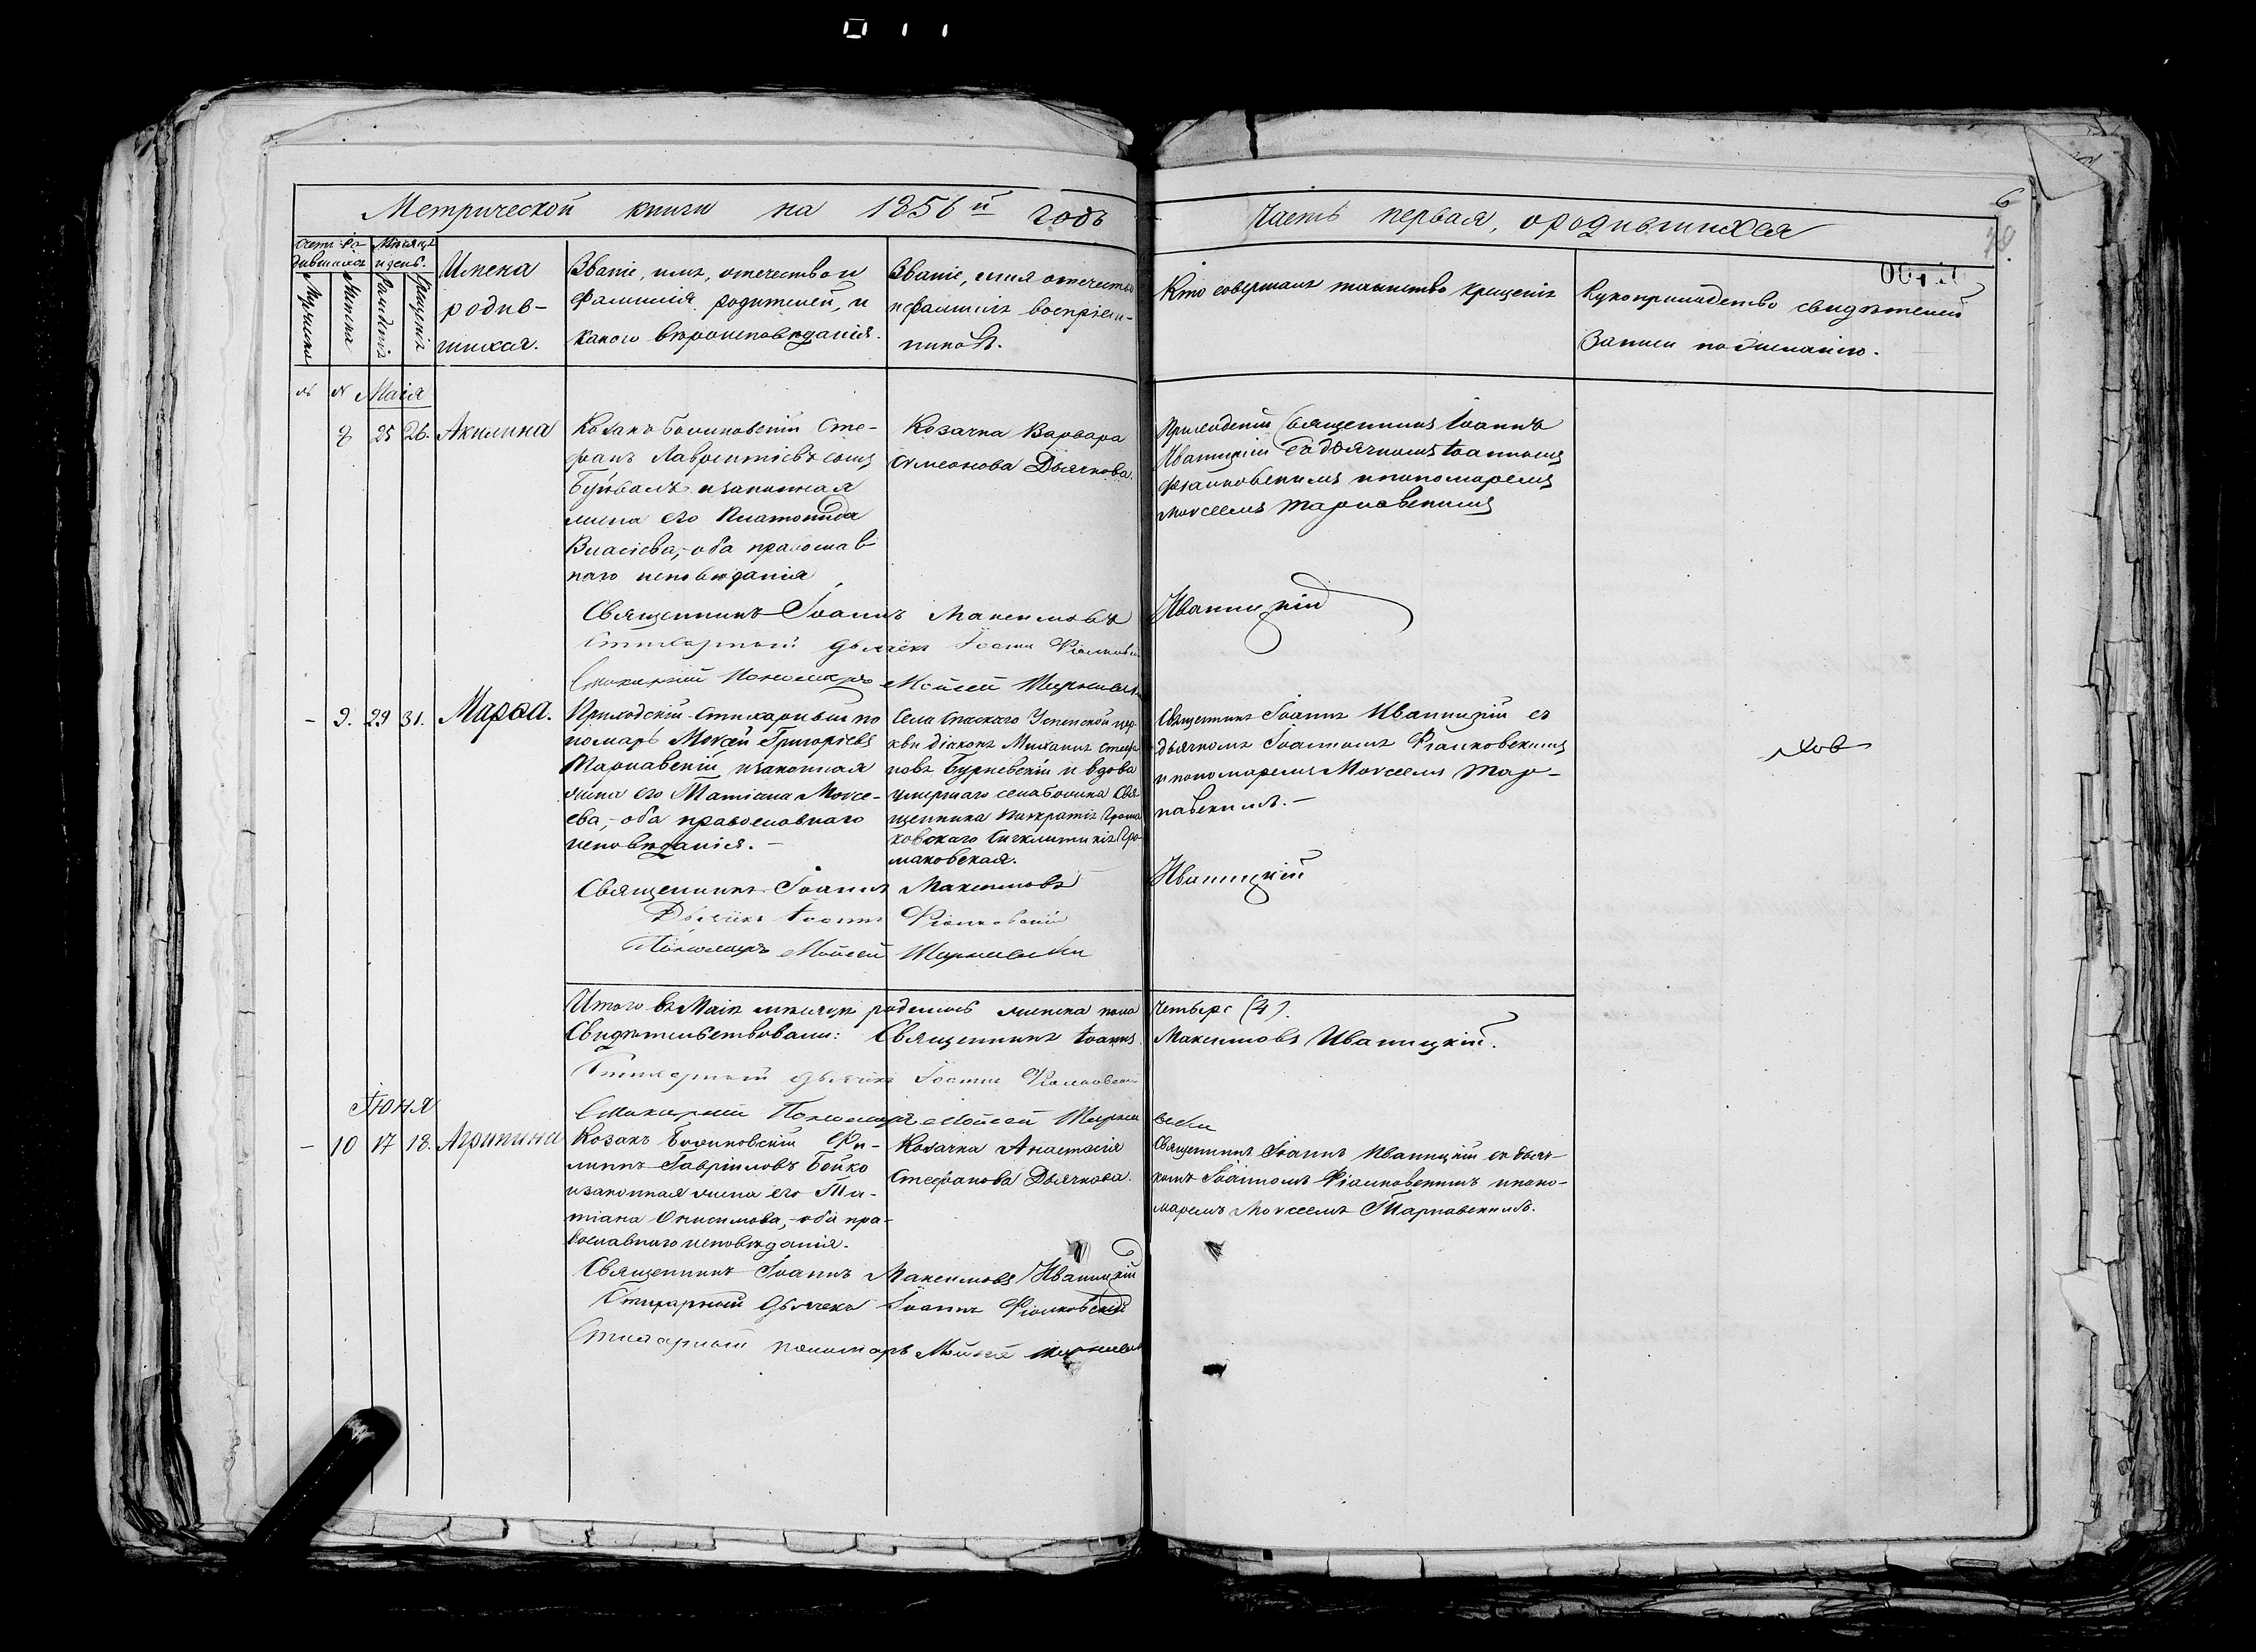 Метрической книги на 1856й годъ
Часть первая, о родившихся
6
Имена родив-
шихся.
Званіе, имя, отечество и
фамилія родителей, и
какого вѣроисповѣданія.
Званіе, имя отечество
и фамилія воспріем-
никовъ.
Кто совершалъ таинство крещенія
Рукоприкладство свидѣтелей
записи по желанію.
Маія
8 25 26. Акилина
Козакъ Бочиковскій Сте-
фанъ Лаврентіевъ сынъ
и законная
жена его
Власіева, оба православ
наго исповѣданія
Козачка Варвара
Симеонова Дьячкова.
Приходскій Священникъ Іоаннъ
Иваницкій съ дьячкомъ Іоанномъ
Фіалковскимъ и пономаремъ
Мовсеемъ Тарнавскимъ
Священникъ Іоаннъ Максимовъ Иваницкій
Стихарный дьячекъ Іоаннъ Фіалковскій
Стихарный Пономарь Мойсей
- 9. 29 31. Марѳа.
Приходскій Стихарный по
номарь Мовсей Григоріевъ
Тарнавскій и законная
жена его Татіана Мовсе-
ева, оба православнаго
исповѣданія. -
Села Спаскаго Успенской цер-
кви діаконъ Михаилъ Стефа
новъ Бурневскій и вдова
умершаго села Свя-
щенника Панкратія Грома
ковскаго Гро-
маковская.
Священникъ Іоаннъ Иваницкій съ
дьячкомъ Іоанномъ Фіалковскимъ
и пономаремъ Мовсеемъ Тар-
навскимъ. -
Священникъ Іоаннъ Максимовъ Иваницкій
Дьячекъ Іоаннъ Фіалковскій
Пономарь Мойсей
Итого въ Маіѣ мѣсяцѣ родилось женска пола Четыре (4).
Свидѣтельствовали: Священникъ Іоаннъ Максимовъ Иваницкій.
Стихарный дьячекъ Іоаннъ Фіалковскій
Стихарный Пономарь Мойсей
Іюня
- 10 17 18. Агрипина
Козакъ Бочиковскій Фи-
липпъ Гавріиловъ Бойко
и законная жена его Та-
тіана Онисимова, оба пра-
вославнаго исповѣданія.
Козачка Анастасія
Стефанова Дьячкова.
Священникъ Іоаннъ Иваницкій съ дьяч-
комъ Іоанномъ Фіалковскимъ и поно-
маремъ Мовсеемъ Тарнавскимъ.
Священникъ Іоаннъ Максимовъ Иваницкій
Стихарный дьячекъ Іоаннъ Фіалковскій
Стихарный пономарь Мойсей